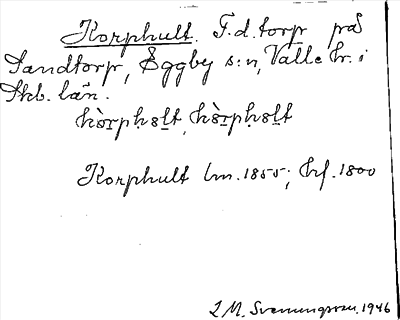 Korphult. F.d. torp på
Sandtorp, Eggby s:n, Valle hr. i
Skb. län.
Korphult lm. 1855; hf. 1800
S. M. Svenungsson. 1946